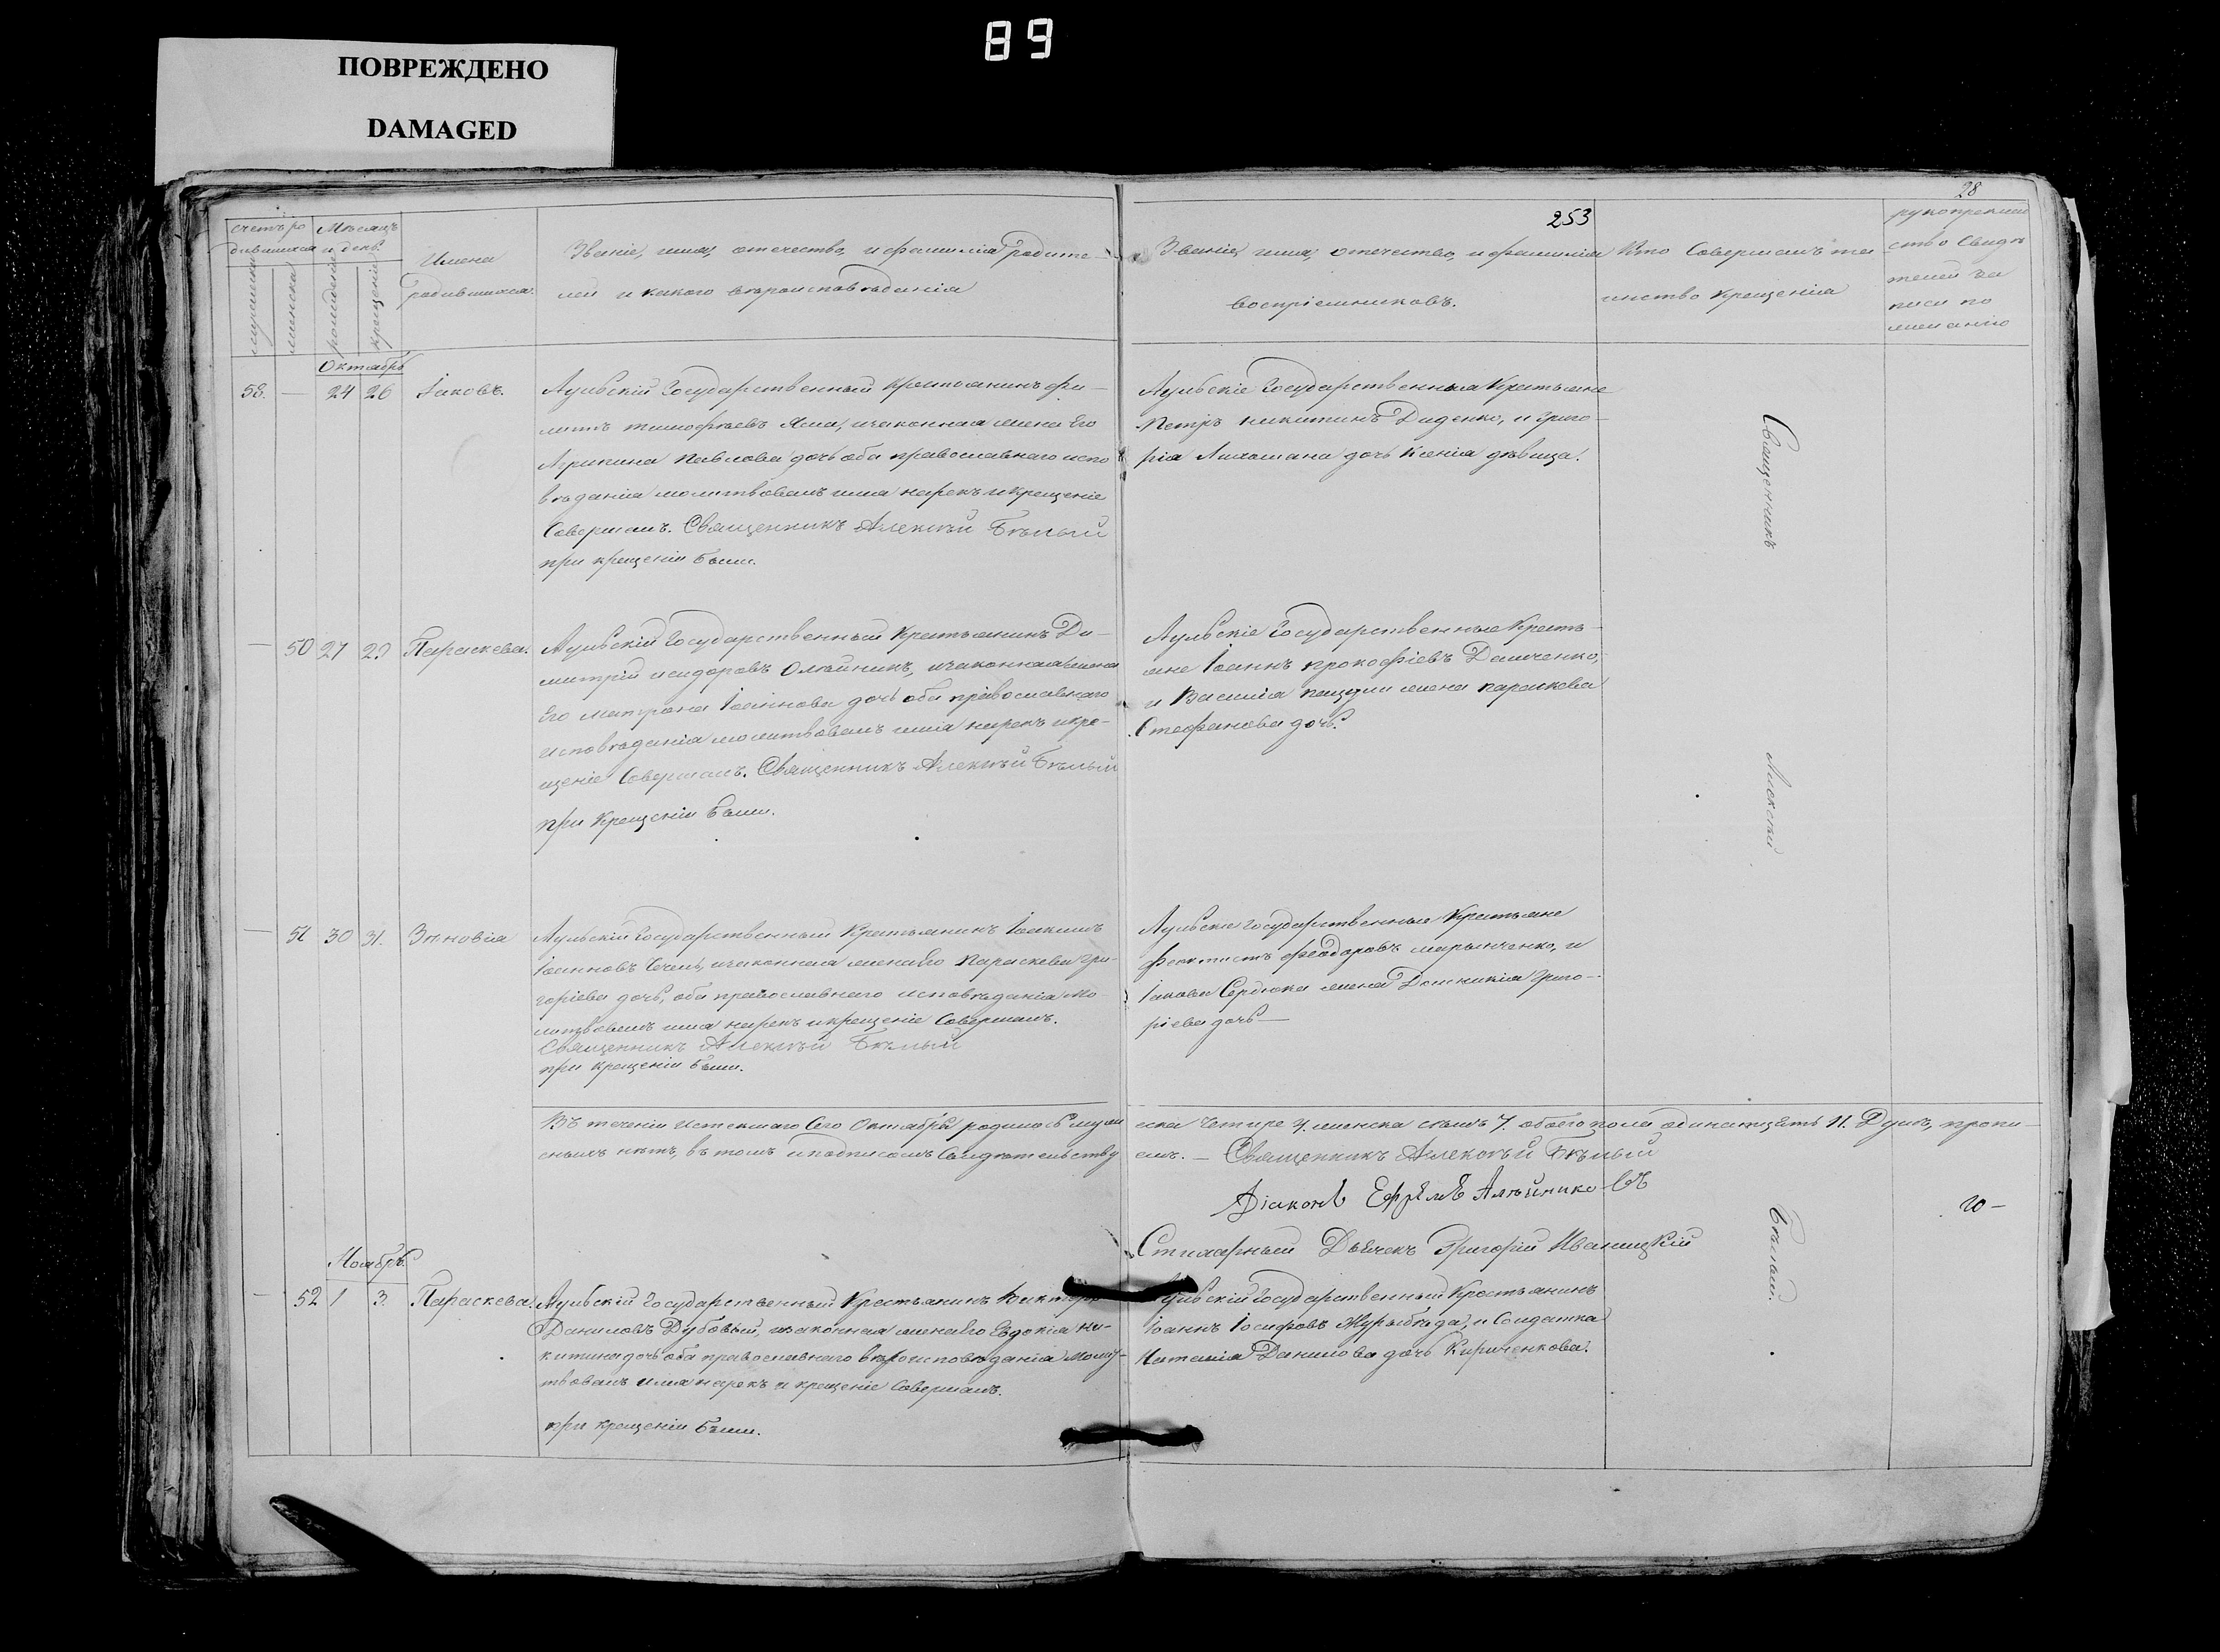 89
ПОВРЕЖДЕНО
DAMAGED
28
253
счетъ ро
дившихся
Мѣсяцъ
и день.
мужеска
женска
рожденіе
крещеніе
Имена
родившихся.
Званіе, имя, отечество, и фамилія родите-
лей и какого вѣроисповѣданія
Званіе, имя, отечество, и фамилія
воспріемниковъ.
Кто совершалъ та-
инство крещенія
рукоприклад
ство свидѣ
телей за
писи по
желанію
Октябрь
58. — 24 26 Іаковъ.
Аульскій Государственный Крестьянинъ Фи-
липъ Тимофѣевъ Яма, и законная жена его
Агрипина Павлова дочь оба православнаго испо
вѣданія молитвовалъ имя нарекъ и крещеніе
Совершалъ. Священникъ Алексѣй Бѣлый
при крещеніи были.
Аульскіе Государственныя Крестьяне
Петръ Никитинъ Диденко, и Григо-
рія дочь Ксенія дѣвица.
— 50 27 29 Параскева.
Аульскій Государственный Крестьянинъ Ди-
митрій Исидоровъ Олѣйникъ, и законная жена
Его Матрона Іоаннова дочь оба православнаго
исповѣданія молитвовалъ имя нарекъ и кре-
щеніе Совершалъ. Священникъ Алексѣй Бѣлый
при Крещеніи были.
Аульскіе Государственные Кресть-
яне Іоаннъ Прокофіевъ Демченко,
и Василія жена Параскева
Стефанова дочь.
— 51 30 31. Зѣновія
Аульскій Государственный Крестьянинъ Іоакимъ
Іоанновъ и законная жена Его Параскева Гри-
горіева дочь, оба православнаго исповѣданія мо
литвовалъ имя нарекъ и крещеніе Совершалъ.
Священникъ Алексѣй Бѣлый
при крещеніи были.
Аульскіе Государственные Крестьяне
Феоктистъ Феодоровъ Марынченко, и
Іакова Сердюка жена Домникія Григо-
ріева дочь—
Въ теченіи истекшаго Сего Октября родилось муж
еска четире 4. женска семь 7. обоего пола одинатцять 11. Душъ, пропи-
сныхъ нѣтъ, въ томъ и подписомъ Свидѣтельству
емъ. — Священникъ Алексѣй Бѣлый
Діаконъ Ефремъ Алѣйниковъ
Стихарный Дьячекъ Григорій Иваницкій
Ноябрь.
— 52 1 3. Параскева.
Аульскій Государственный Крестьянинъ Викторъ
Даниловъ Дубовый, и законная жена Его Евдокія Ни-
китина дочь оба православнаго вѣроисповѣданія Моли-
твовалъ имя нарекъ и крещеніе Совершалъ.
при крещеніи были.
Аульскій Государственный Крестьянинъ
Іоаннъ Іосифовъ Журыбѣда, и Солдатка
Наталія Данилова дочь Кириченкова.
Священникъ
Алексѣй
Бѣлый.
20 —